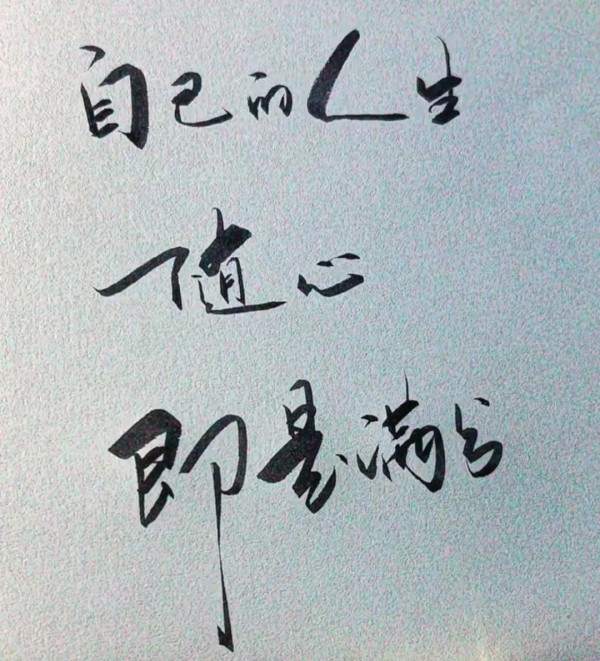 自己的人生
随心
即是满分